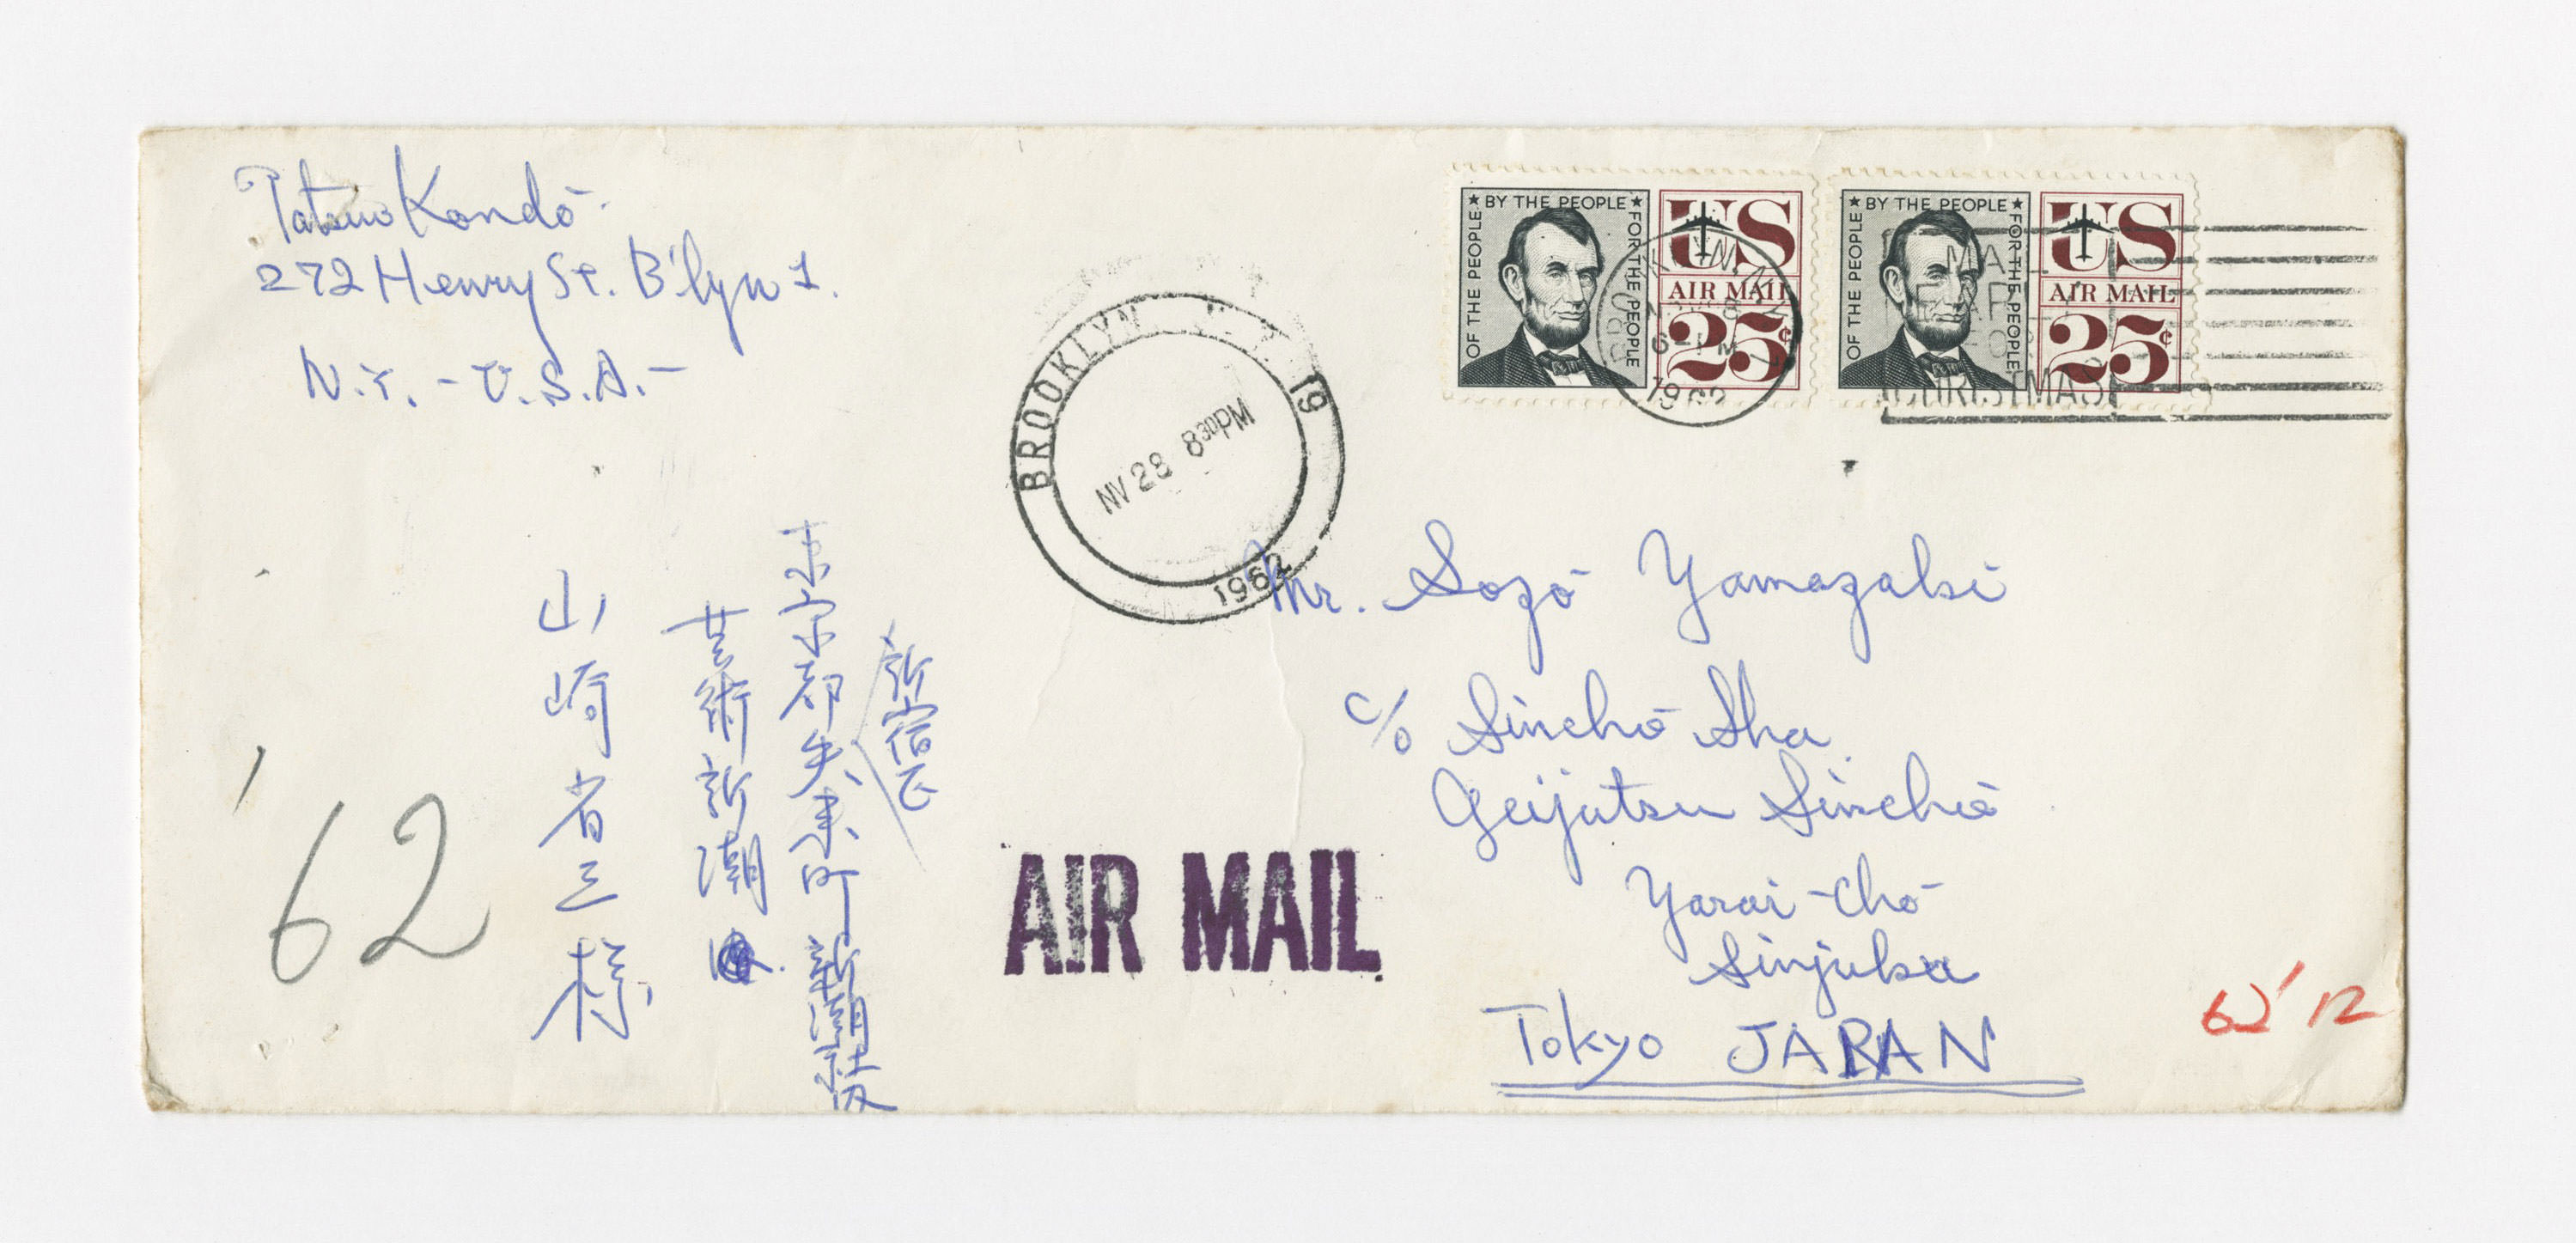 Tatsuo Kondō
272 Henry St. B'lyn 1.
N.Y. - U.S.A. -
BY THE PEOPLE
OF THE PEOPLE
FOR THE PEOPLE
US
AIR MAIL
25¢
BY THE PEOPLE
OF THE PEOPLE
FOR THE PEOPLE
US
AIR MAIL
25¢
1962
CHRISTMAS
BROOKLYN N.Y. 19
NV 28 830PM
1962
Mr. Sozō Yamazaki
c/o Sinchō Sha.
Geijutsu Sinchō
Yarai-Cho
Sinjuku
Tokyo JAPAN
AIR MAIL
新宿区
東京都矢来町新潮社
芸術新潮
山崎省三様
'62
62' 12